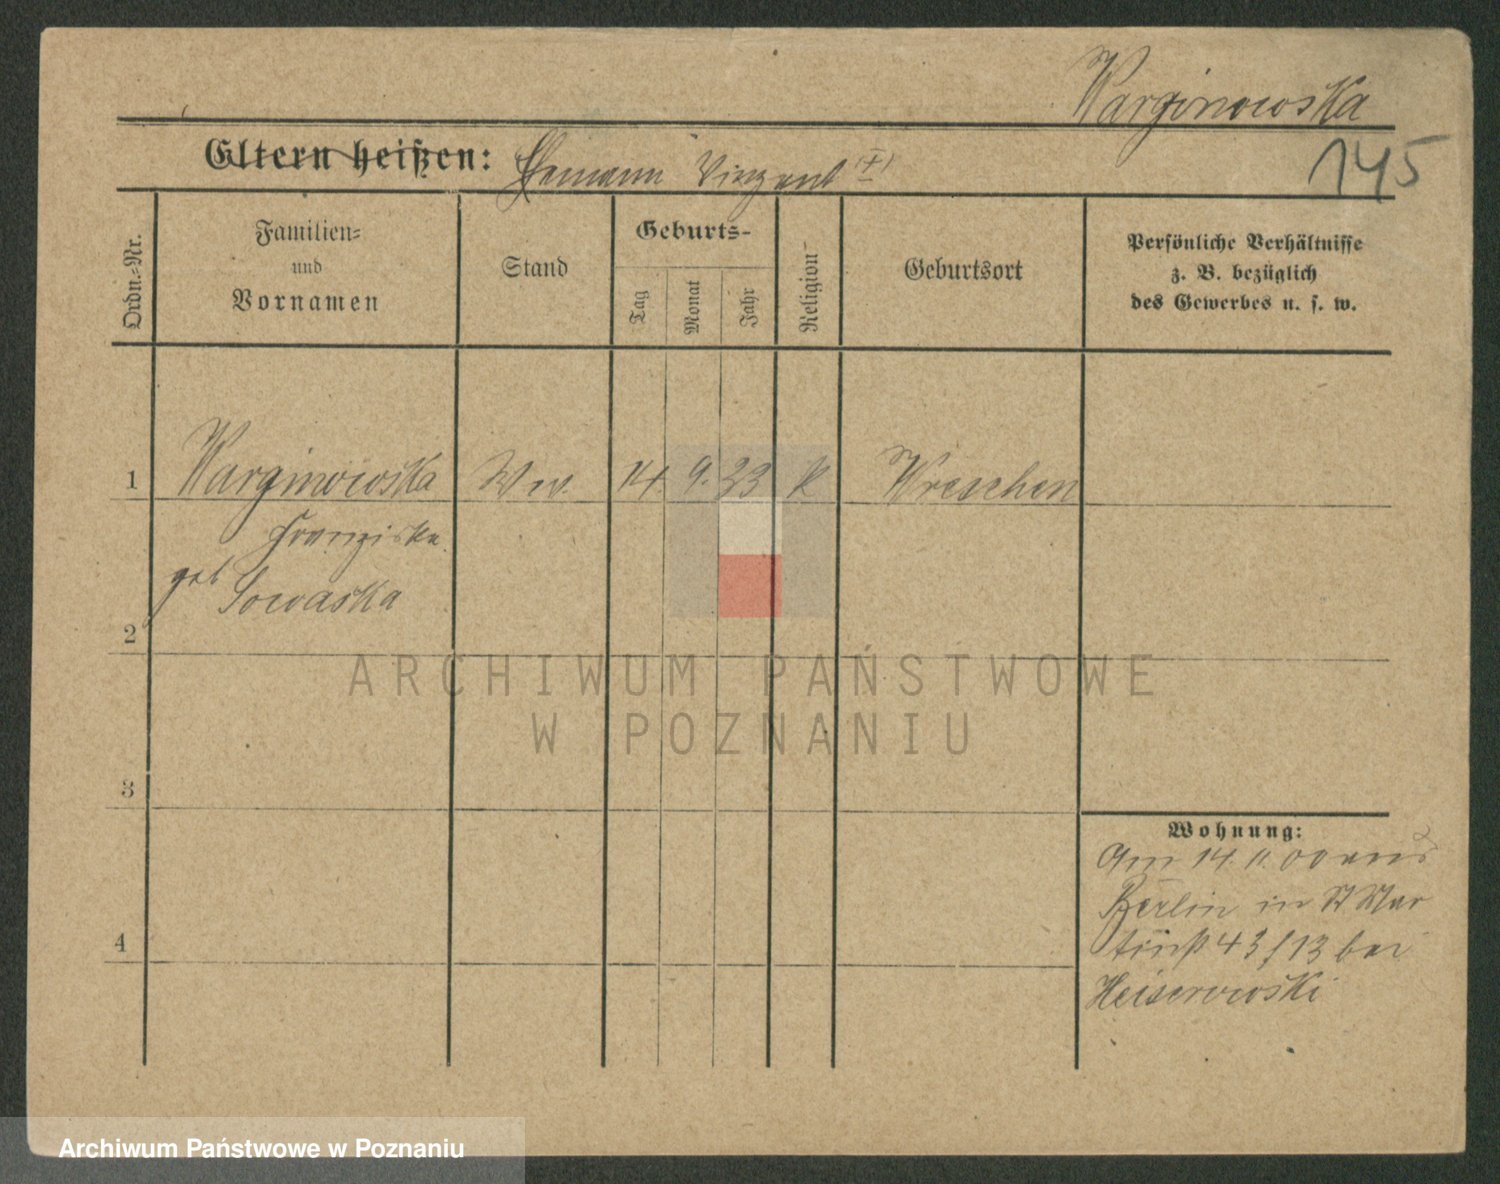 Warginowska
145
Eltern heißen: Ehemann Vinzent (†)
Ordn.=Nr.
Familien=
und
Vornamen
Stand
Geburts-
Tag
Monat
Jahr
Religion
Geburtsort
Persönliche Verhältnisse
z. B. bezüglich
des Gewerbes u. s. w.
1 Warginowska Ww. 14. 9. 33 k Wreschen
Franziska
geb
Sowaska
2
ARCHIWUM PAŃSTWOWE
W POZNANIU
3
4
Wohnung:
Am 14. 11. 00 aus
Berlin in St Mar
tinst 43/13 bei
Heiserowski
Archiwum Państwowe w Poznaniu